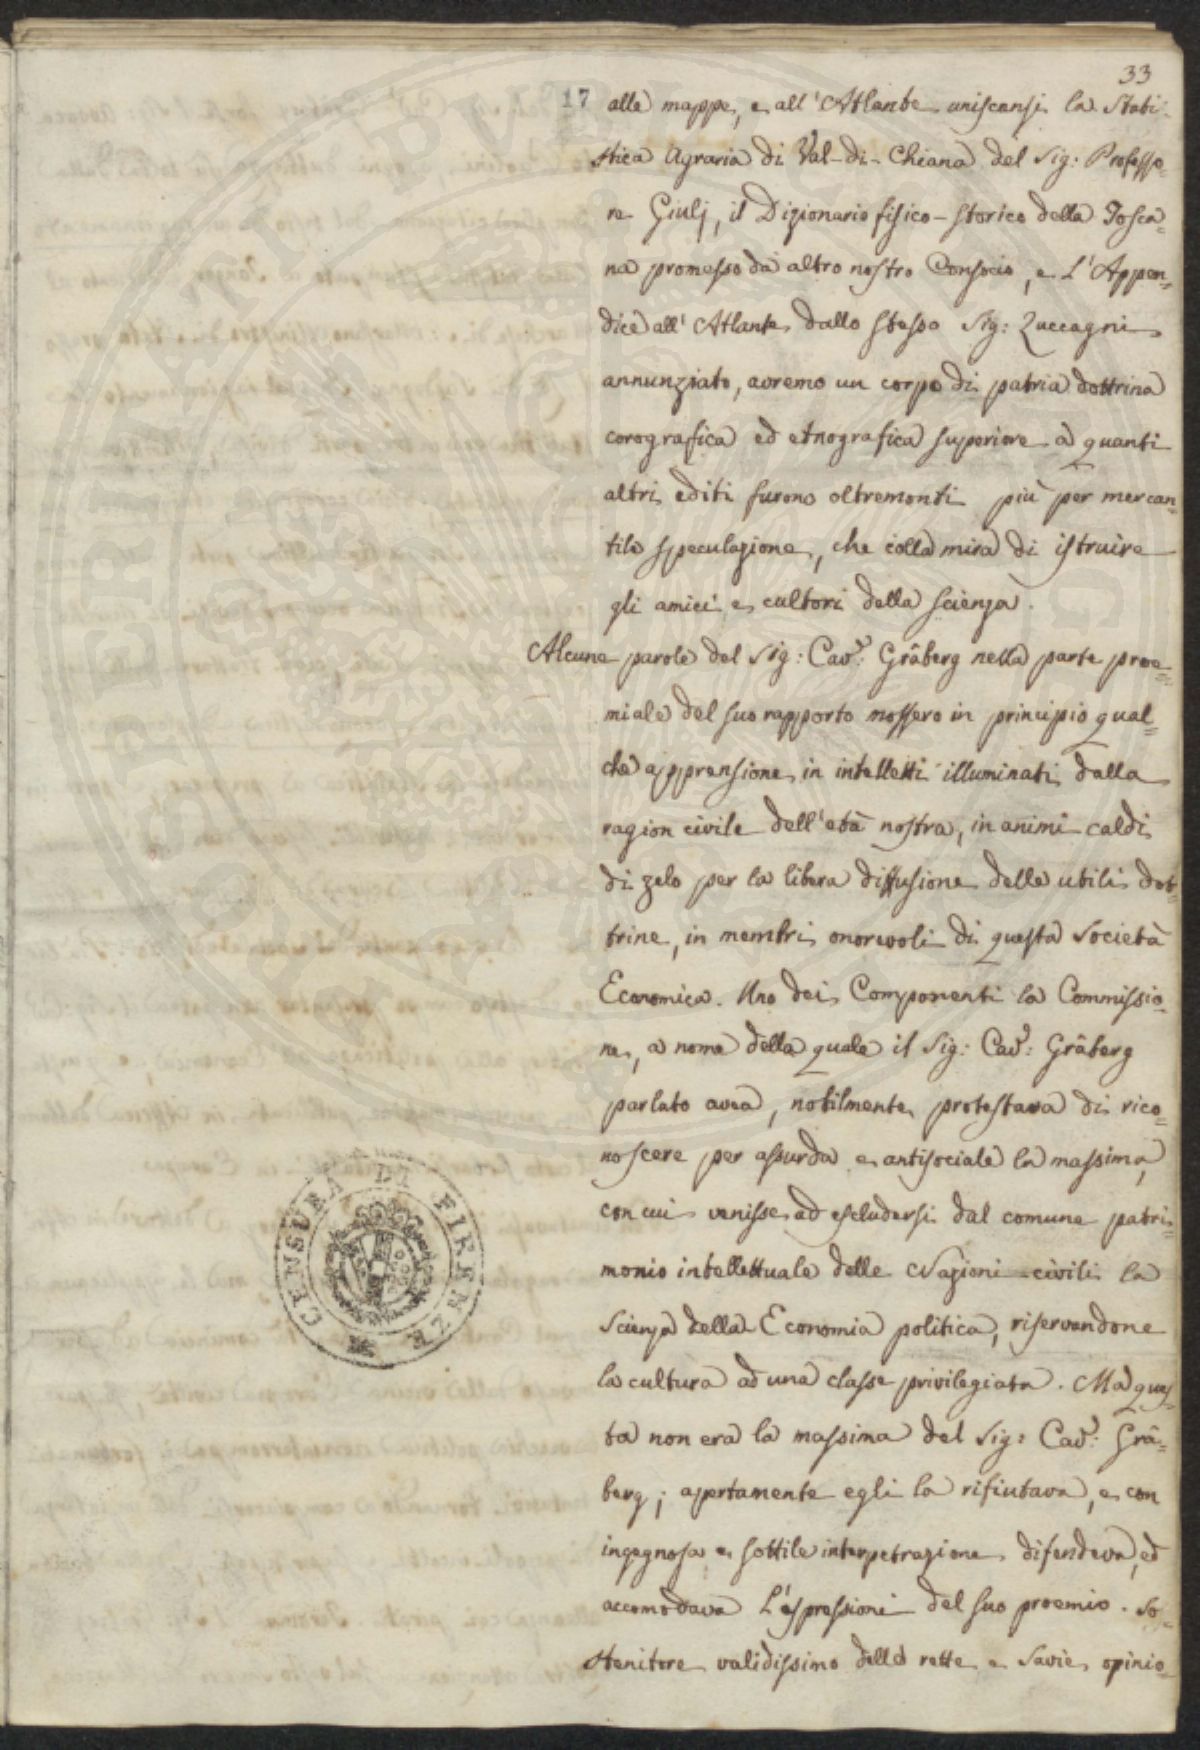 33
17
alle mappe, e all'Atlante uniscansi la Stati-
stica Agraria di Val-di-Chiana del Sig: Professo=
re Giulj, il Dizionario fisico-storico della Tosca=
na promesso da altro nostro Consocio, e L'Appen=
dice all'Atlante dallo stesso Sig: Zuccagni
annunziato, avremo un corpo di patria dottrina
corografica ed etnografica superiore a quanti
altri editi furono oltremonti più per mercan=
tile speculazione, che colla mira di istruire
gli amici e cultori della scienza.
Alcune parole del Sig: Cav: Gråberg nella parte proe=
miale del suo rapporto mossero in principio qual=
che apprensione in intelletti illuminati dalla
ragion civile dell'età nostra, in animi caldi
di zelo per la libera diffusione delle utili dot=
trine, in membri onorevoli di questa Società
Economica. Uno dei Componenti la Commissio=
ne, a nome della quale il Sig: Cav: Gråberg
parlato avea, nobilmente protestava di rico=
noscere per assurda e antisociale la massima,
con cui venisse ad escludersi dal comune patri=
monio intellettuale delle Nazioni civili la
Scienza della Economia politica, riservandone
la cultura ad una classe privilegiata. Ma ques=
ta non era la massima del Sig: Cav: Grå=
berg; apertamente egli la rifiutava, e con
ingegnosa e sottile interpetrazione difendeva, ed
accomodava L'espressioni del suo proemio. So=
stenitore validissimo delle rette e savie opinio=
CENSURA DI FIRENZE